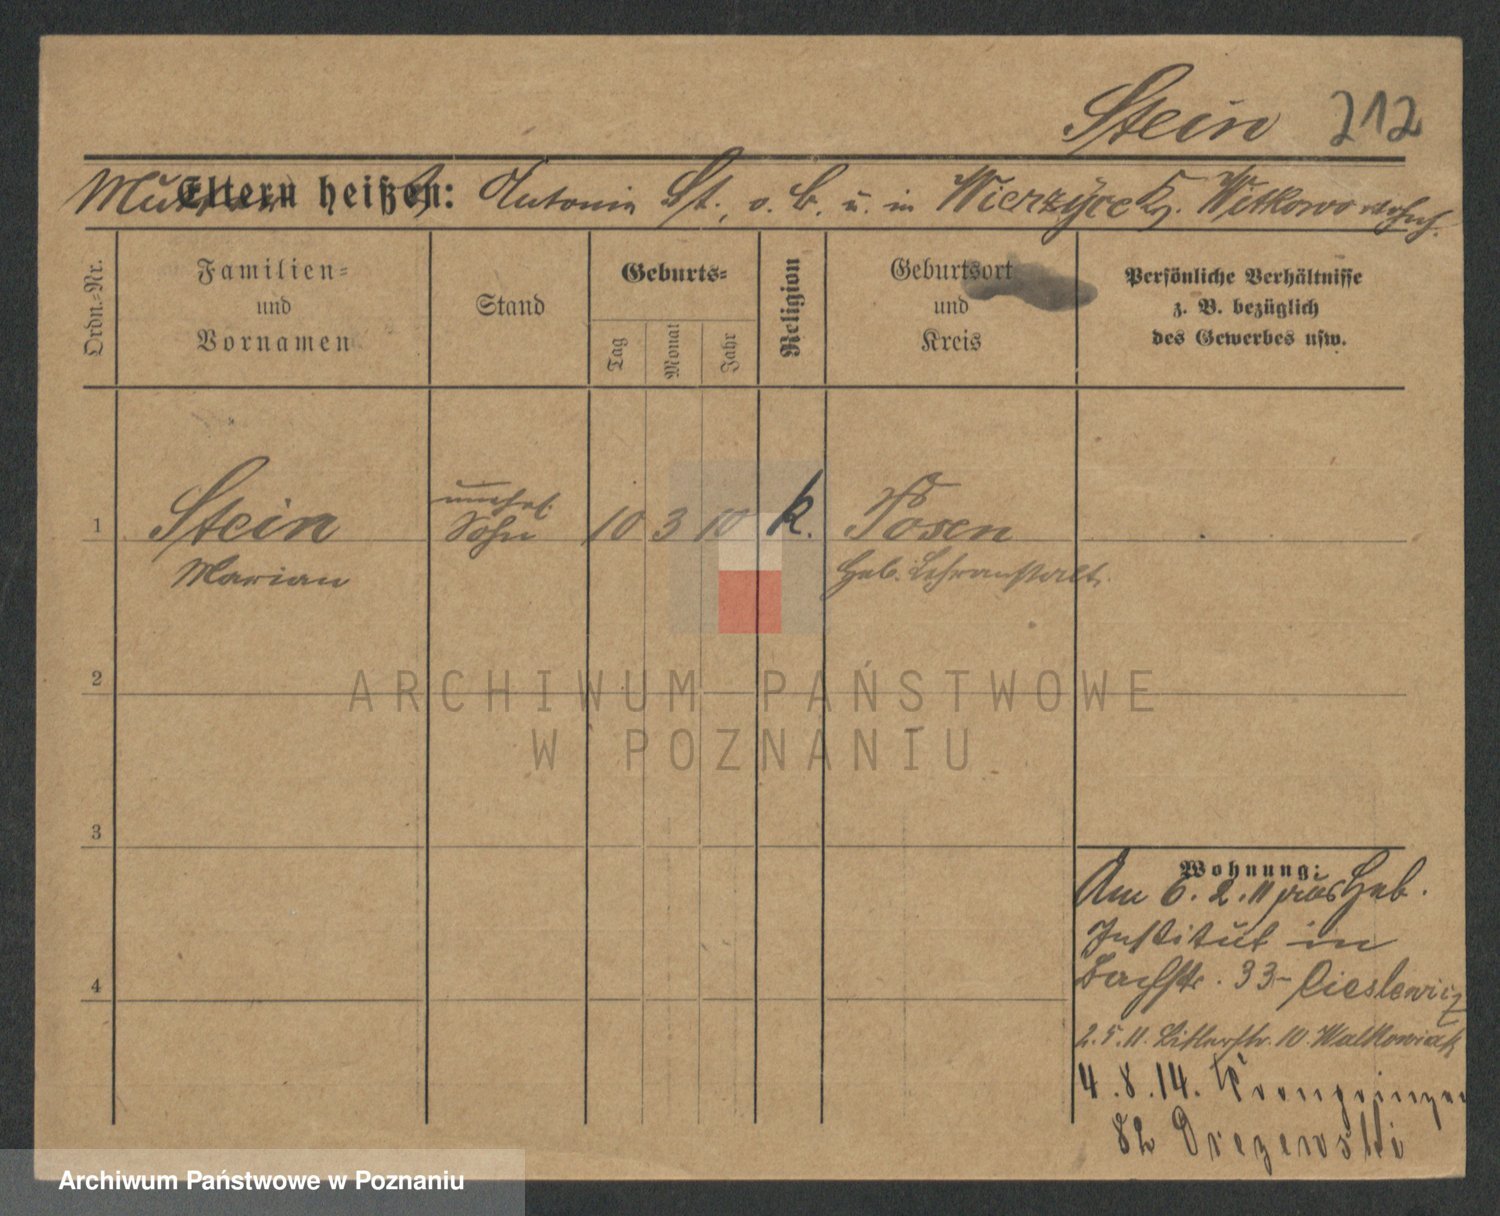 Stein 212
Mutter Eltern heißen: Antonie St., o. B. u. in Wierzyce Kr. Witkowo wohnh.
Ordn.-Nr.
Familien-
und
Vornamen
Stand
Geburts-
Tag
Monat
Jahr
Religion
Geburtsort
und
Kreis
Persönliche Verhältnisse
z. B. bezüglich
des Gewerbes usw.
1 Stein unehel. Sohn 10 3 10 k. Posen
Marian Heb. Lehranstalt.
2
3
4
Wohnung:
Am 6. 2. 11 aus Heb.
Institut in
Bachstr. 33 - Cieslewicz
2. 5. 11. 10. Walkowiak
4. 8. 14. Kronprinzen
82 Drezewski
ARCHIWUM PAŃSTWOWE
W POZNANIU
Archiwum Państwowe w Poznaniu